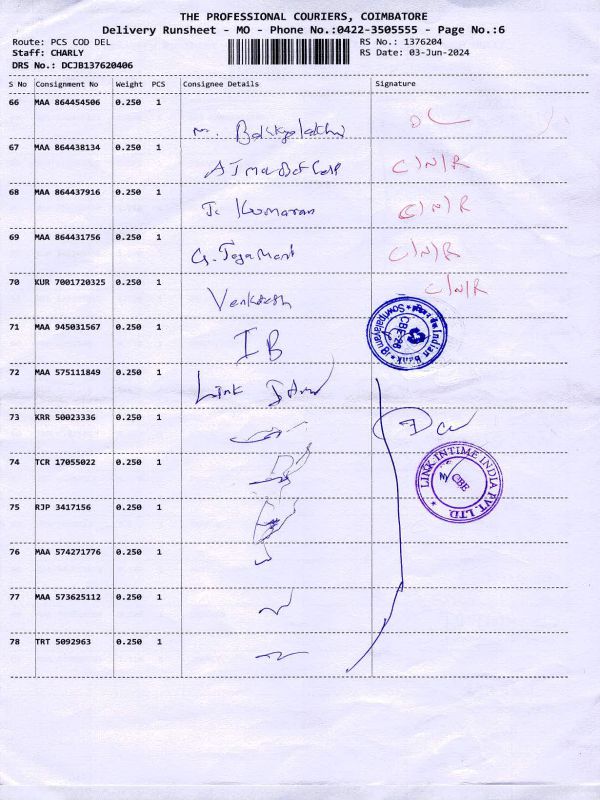 THE PROFESSIONAL COURIERS, COIMBATORE
Delivery Runsheet - MO - Phone No.:0422-3505555 - Page No.:6
Route: PCS COD DEL RS No.: 1376204
Staff: CHARLY RS Date: 03-Jun-2024
DRS No.: DCJB137620406
S No Consignment No Weight PCS Consignee Details Signature
66 MAA 864454506 0.250 1
67 MAA 864438134 0.250 1
C/N/R
68 MAA 864437916 0.250 1
Kumaran C/N/R
69 MAA 864431756 0.250 1
C/N/R
70 KUR 7001720325 0.250 1
Venkatesh C/N/R
71 MAA 945031567 0.250 1
IB
Indian Bank
CBE-28
72 MAA 575111849 0.250 1
Link
73 KRR 50023336 0.250 1
74 TCR 17055022 0.250 1
LINK INTIME INDIA PVT. LTD.
CBE
75 RJP 3417156 0.250 1
76 MAA 574271776 0.250 1
77 MAA 573625112 0.250 1
78 TRT 5092963 0.250 1